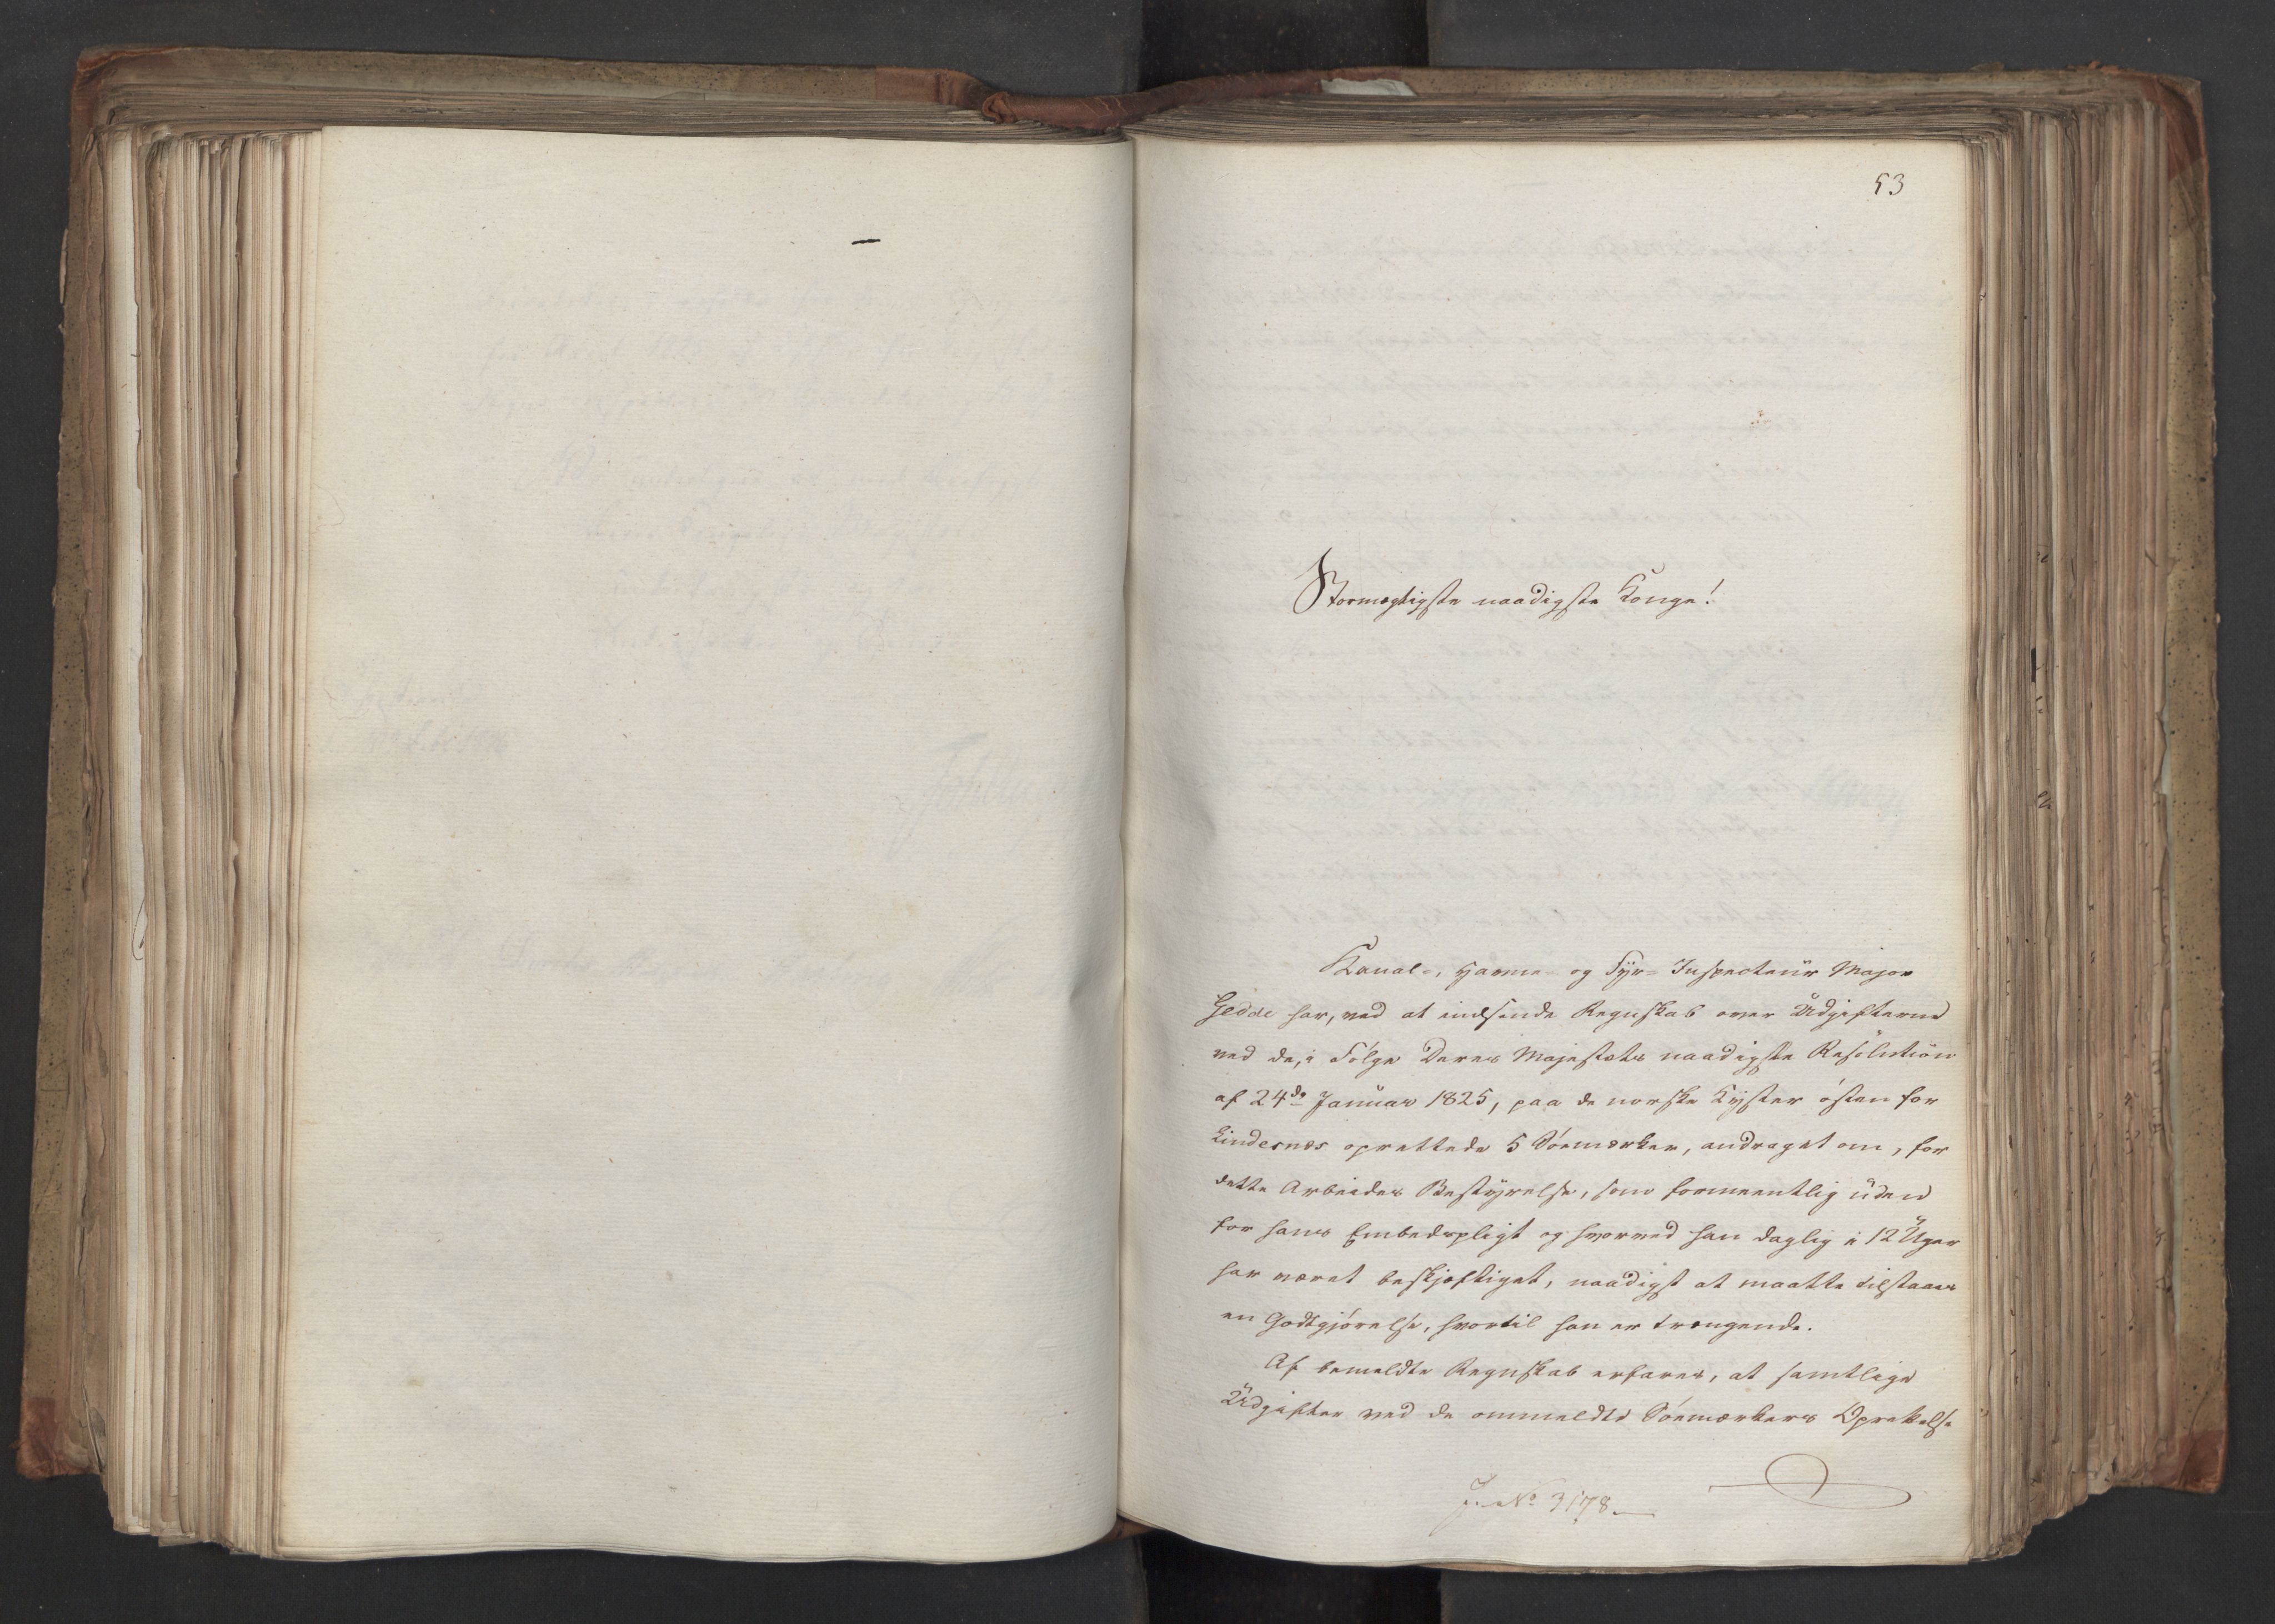 53
Stormægtigste naadigste Konge!
Kanal-, Havne- og Fyr- Inspecteur Major
Gedde har, ved at indsende Regnskab over Udgifterne
ved de, i Følge Deres Majestæts naadigste Resolution
af 24de Januar 1825, paa de norske Kyster østen for
Lindesnæs oprettede 5 Sømærker, andraget om, for
dette Arbeides Bestyrelse, som formeentlig uden
for hans Embedspligt og hvorved han daglig i 12 Uger
har været beskjæftiget, naadigst at maatte tilstaaes
en Godtgjørelse, hvortil han er trængende.
Af bemeldte Regnskab erfares, at samtlige
Udgifter ved de ommeldte Sømærkers Oprettelse
J. No 3178.